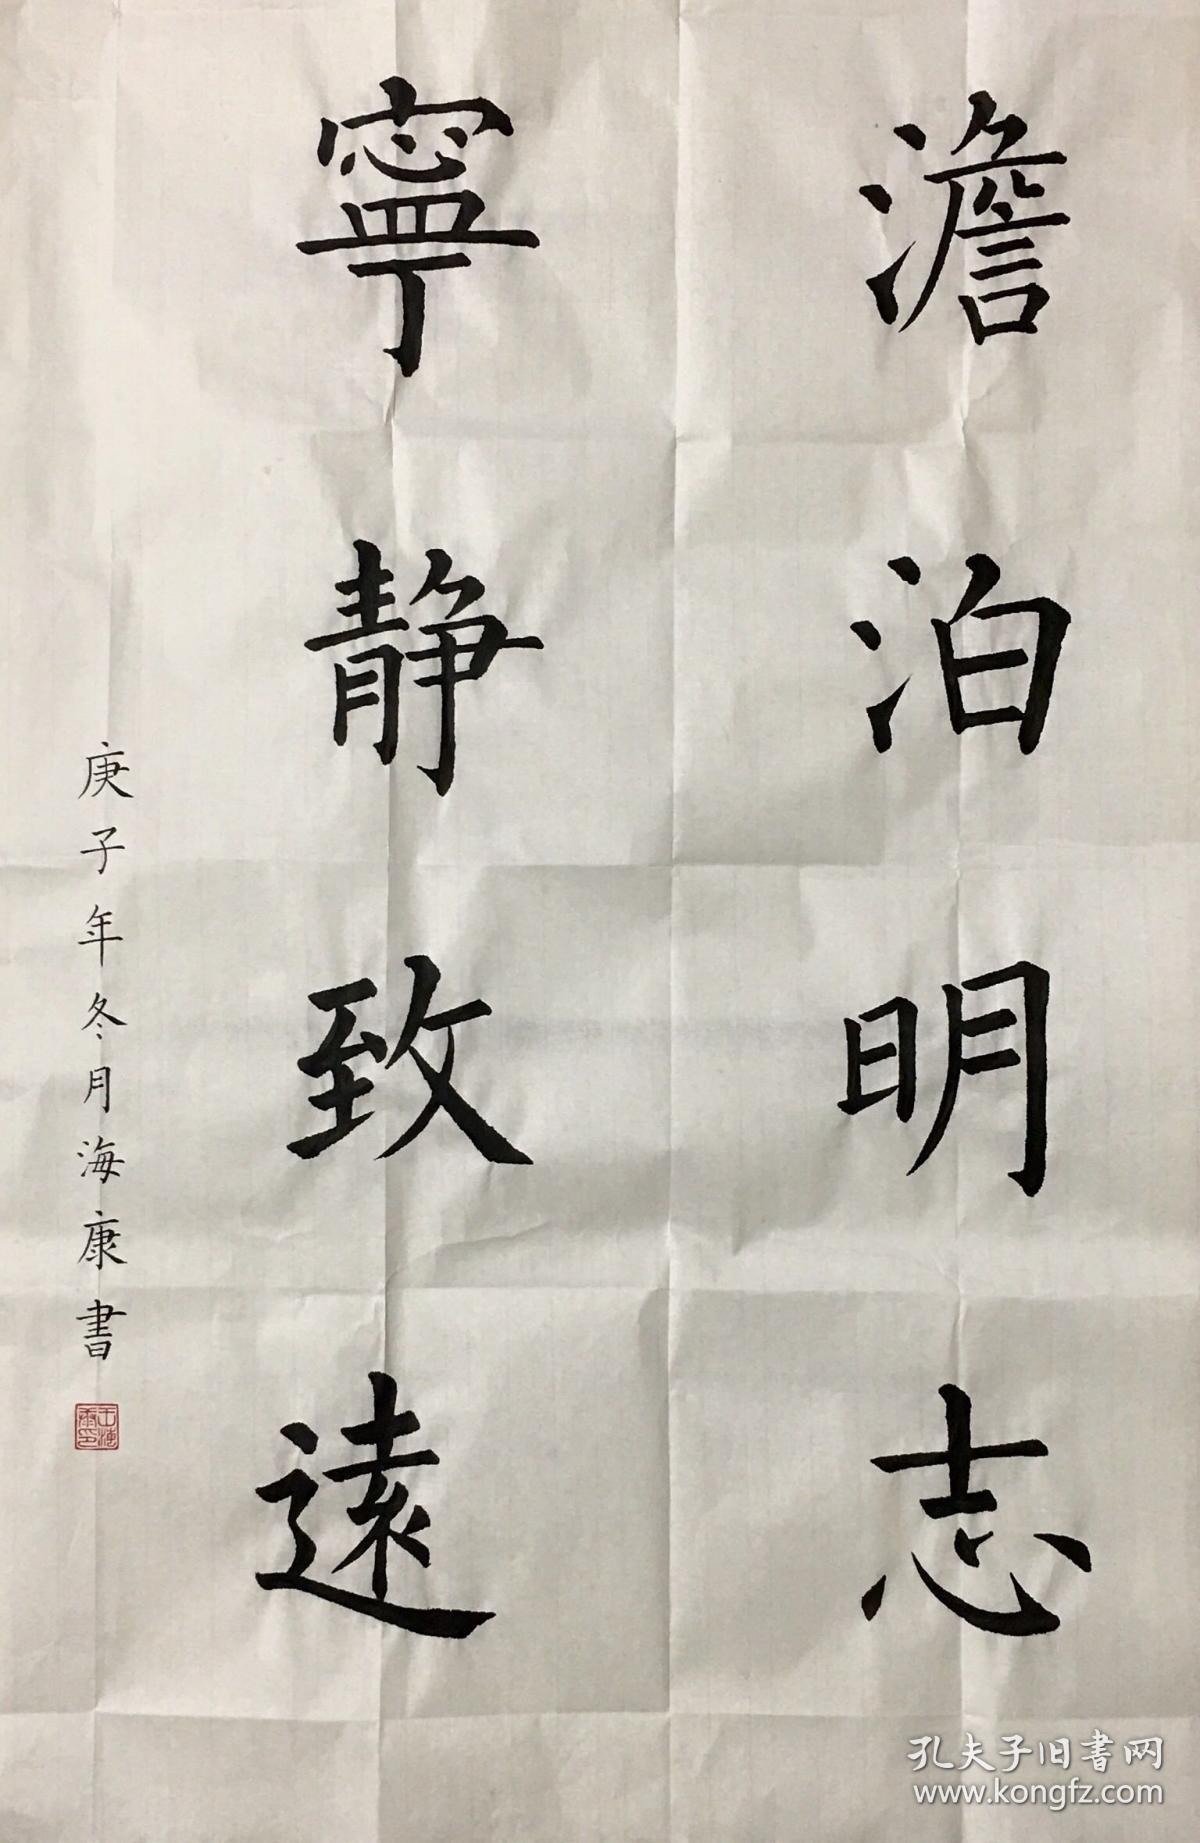 澹泊明志
寧静致遠
庚子年冬月海康書
孔夫子旧書网
www.kongfz.com